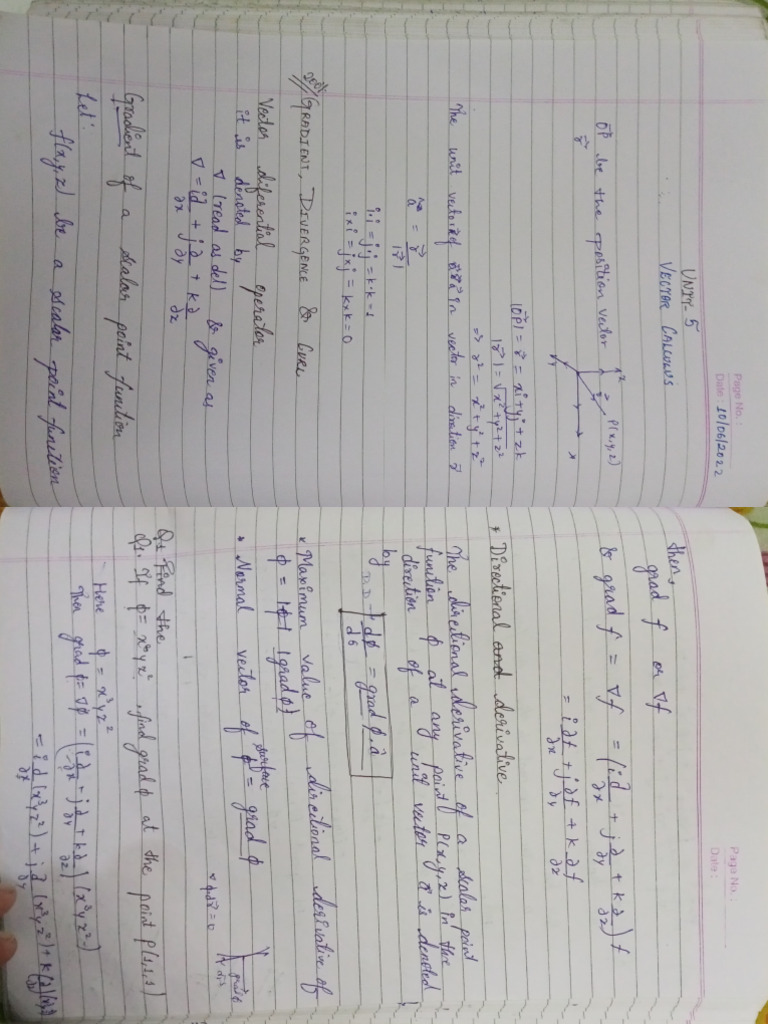 Page No.:
Date: 10/06/2022
UNIT-5
VECTOR CALCULUS
z
P(x,y,z)
x
y
OP be the position vector
r
|OP| = r = xi+yj+zk
|r| = √x²+y²+z²
=> r² = x²+y²+z²
The unit vector in vector in diration r
a = r
|r|
i·i = j·j = k·k = 1
i×i = j×j = k×k = 0
GRADIENT, DIVERGENCE & CURL
Vector diferential operator
it is denoted by
∇ (read as del) & given as
∇ = i∂/∂x + j∂/∂y + k∂/∂z
Gradient of a scalar point function
Let:
f(x,y,z) be a scalar point function
Page No.:
Date:
then,
grad f or ∇f
& grad f = ∇f = (i∂/∂x + j∂/∂y + k∂/∂z) f
= i∂f/∂x + j∂f/∂y + k∂f/∂z
* Directional and derivative.
The directional derivative of a scalar point
function ϕ at any point P(x,y,z) in the
direction of a unit vector a is denoted
by
D.D → dϕ/ds = grad ϕ.a
* Maximum value of directional derivative of
ϕ = |grad ϕ|
* Normal vector of surface ϕ = grad ϕ
∇ϕ.dr = 0
Q. Find the
Q1. If ϕ = x³yz², find grad ϕ at the point P(1,1,1)
Here ϕ = x³yz²
Then grad ϕ = ∇ϕ = (i∂/∂x + j∂/∂y + k∂/∂z) (x³yz²)
= i∂/∂x (x³yz²) + j∂/∂y (x³yz²) + k